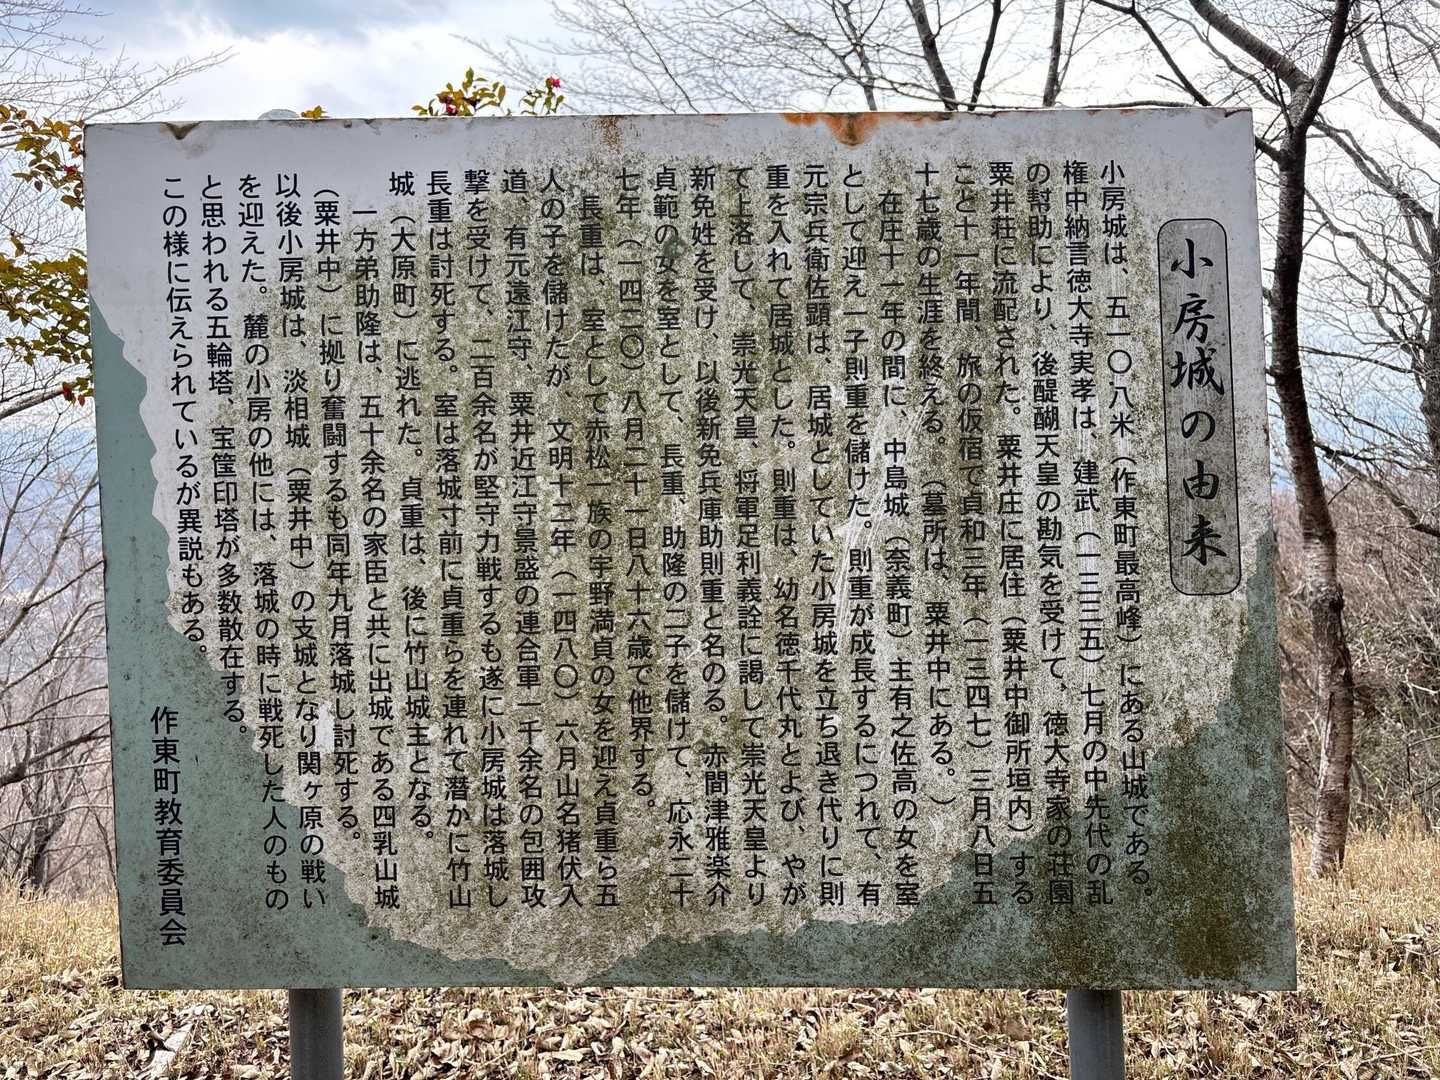 小房城の由来
小房城は、五一〇・八米(作東町最高峰)にある山城である。
権中納言徳大寺実孝は、建武(一三三五)七月の中先代の乱
の幇助により、後醍醐天皇の勘気を受けて、徳大寺家の荘園、
粟井荘に流配された。粟井庄に居住(粟井中御所垣内)する
こと十一年間、旅の仮宿で貞和三年(一三四七)三月八日五
十七歳の生涯を終える。(墓所は、粟井中にある。)
在庄十一年の間に、中島城(奈義町)主有之佐高の女を室
として迎え一子則重を儲けた。則重が成長するにつれて、有
元宗兵衛佐顕は、居城としていた小房城を立ち退き代りに則
重を入れて居城とした。則重は、幼名徳千代丸とよび、やが
て上落して、崇光天皇、将軍足利義詮に謁して崇光天皇より
新免姓を受け、以後新免兵庫助則重と名のる。赤間津雅楽介
貞範の女を室として、長重、助隆の二子を儲けて、応永二十
七年(一四二〇)八月二十一日八十六歳で他界する。
長重は、室として赤松一族の宇野満貞の女を迎え貞重ら五
人の子を儲けたが、文明十二年(一四八〇)六月山名猪伏入
道、有元遠江守、粟井近江守景盛の連合軍一千余名の包囲攻
撃を受けて、二百余名が堅守力戦するも遂に小房城は落城し
長重は討死する。室は落城寸前に貞重らを連れて潜かに竹山
城(大原町)に逃れた。貞重は、後に竹山城主となる。
一方弟助隆は、五十余名の家臣と共に出城である四乳山城
(粟井中)に拠り奮闘するも同年九月落城し討死する。
以後小房城は、淡相城(粟井中)の支城となり関ヶ原の戦い
を迎えた。麓の小房の他には、落城の時に戦死した人のもの
と思われる五輪塔、宝筺印塔が多数散在する。
この様に伝えられているが異説もある。
作東町教育委員会